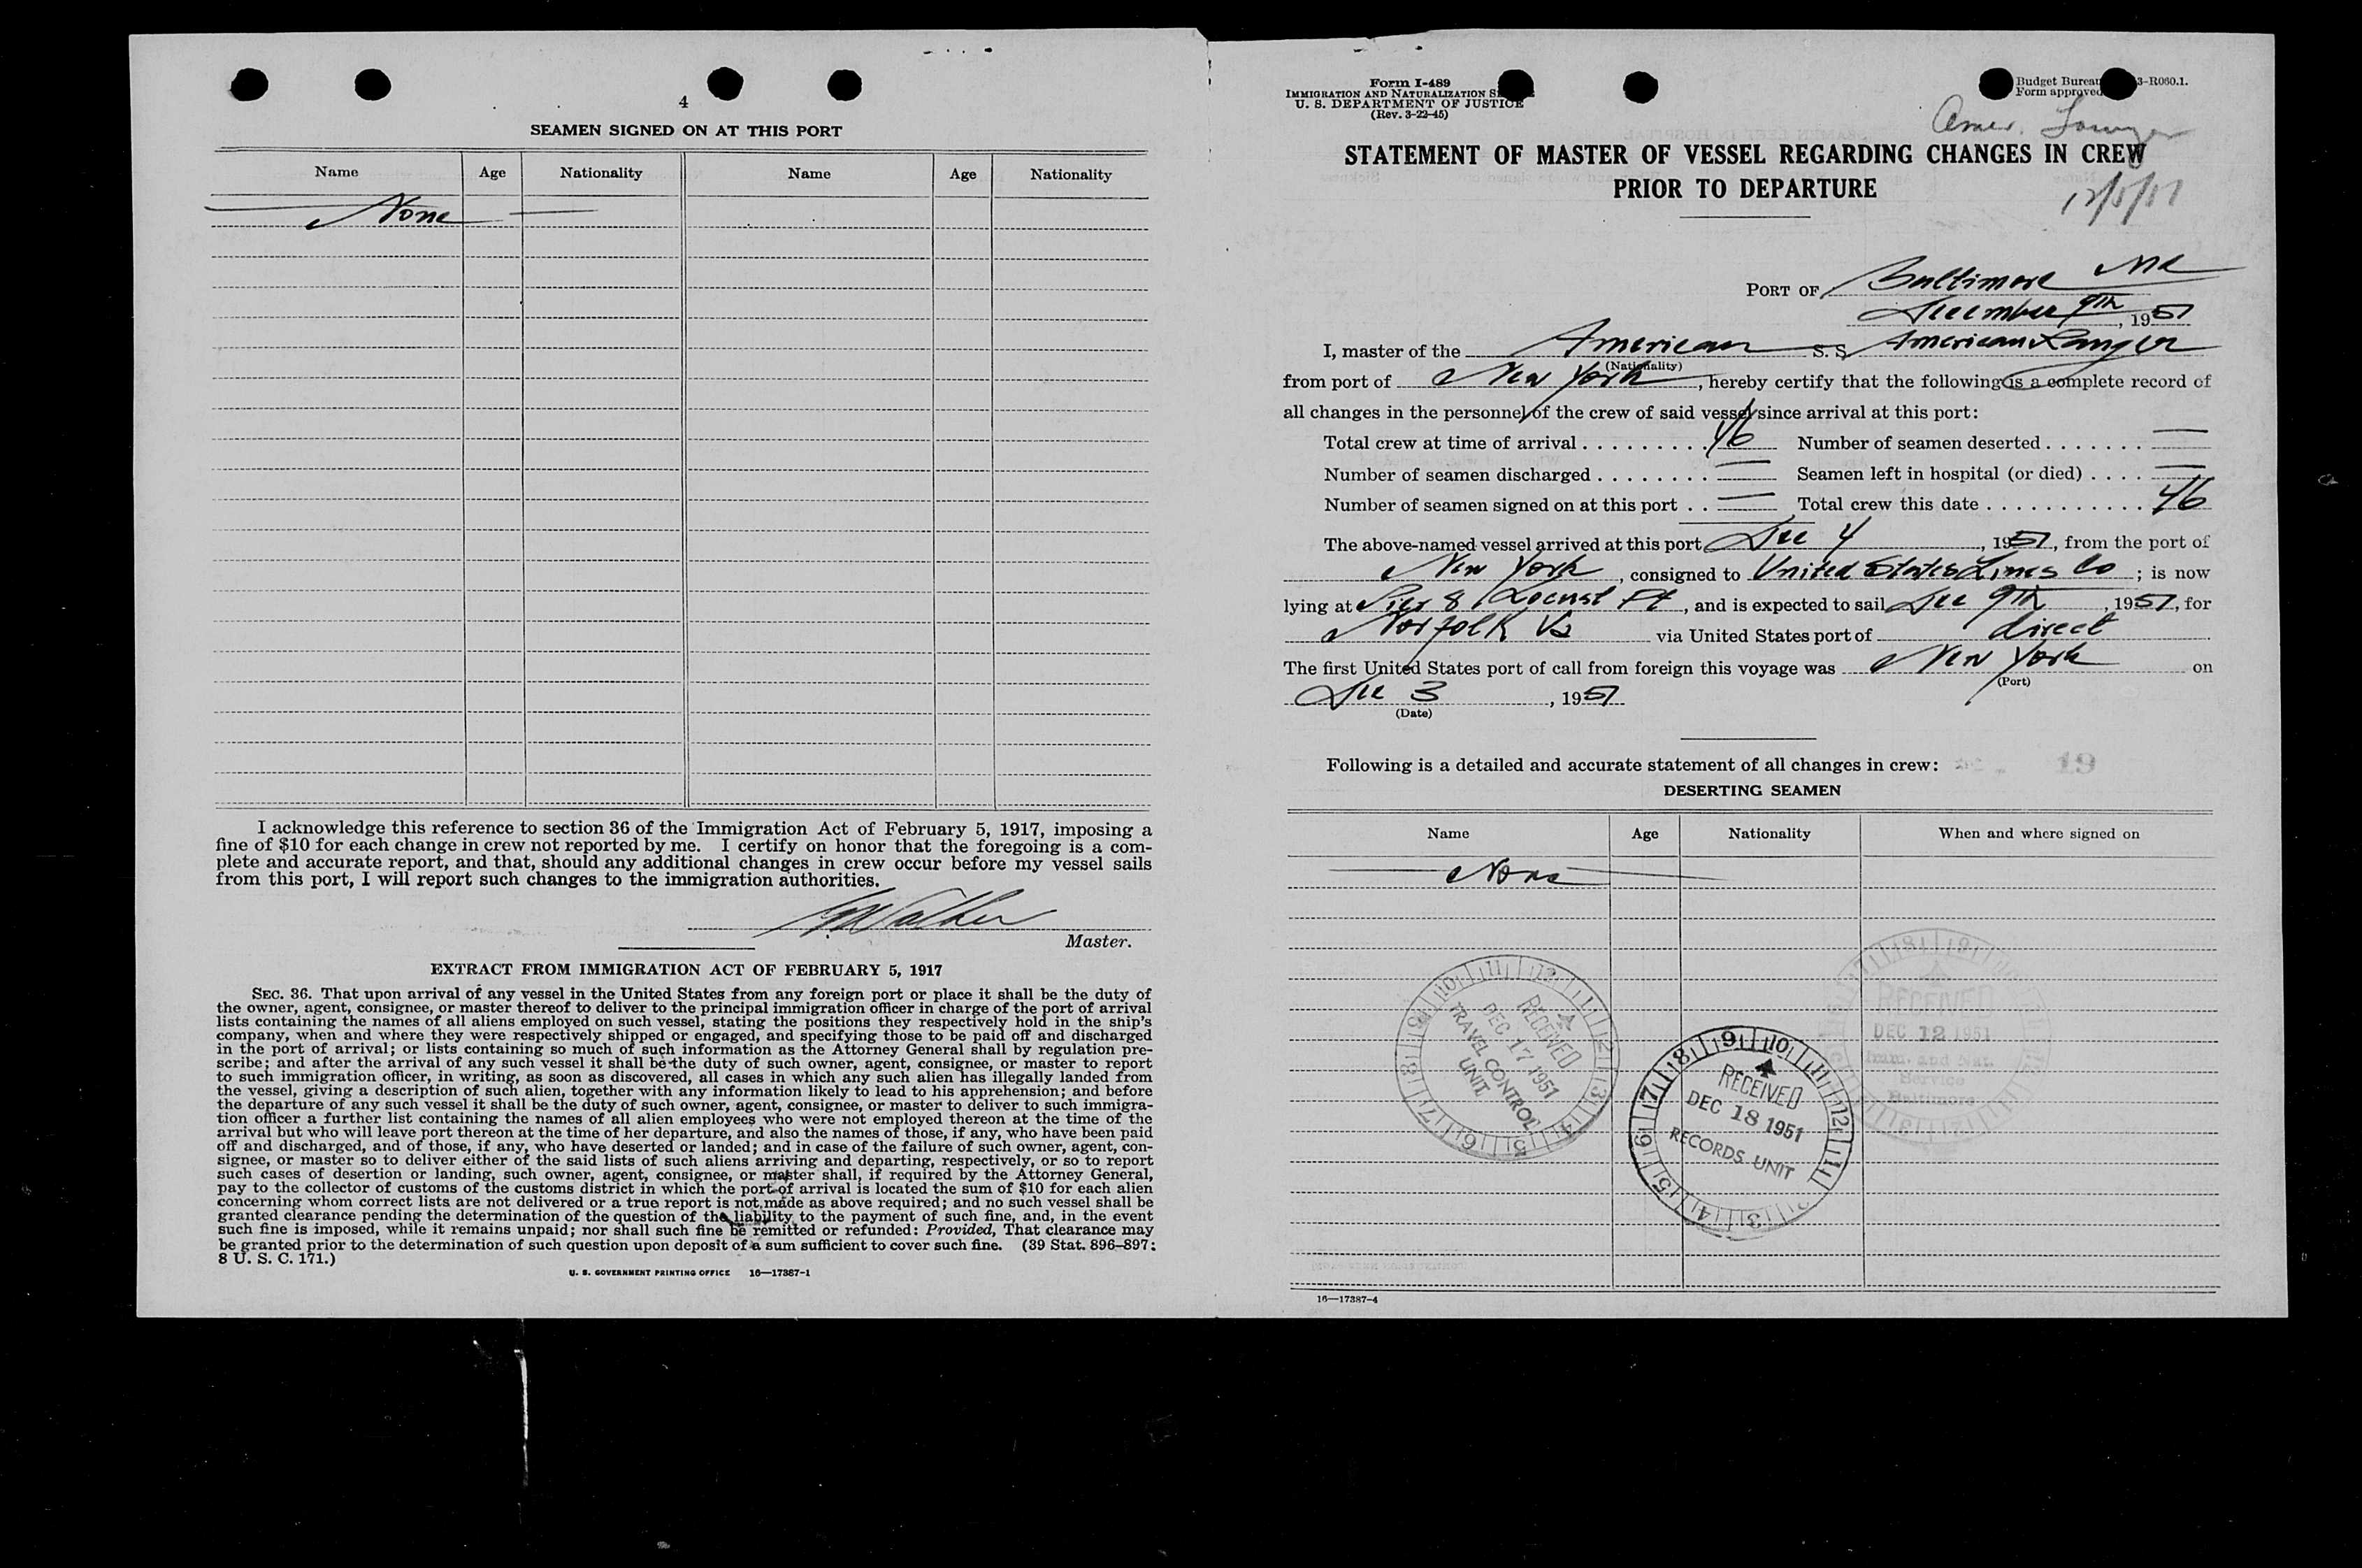 4
SEAMEN SIGNED ON AT THIS PORT
Name Age Nationality Name Age Nationality
None
I acknowledge this reference to section 36 of the Immigration Act of February 5, 1917, imposing a
fine of $10 for each change in crew not reported by me. I certify on honor that the foregoing is a com-
plete and accurate report, and that, should any additional changes in crew occur before my vessel sails
from this port, I will report such changes to the immigration authorities.
Walker
Master.
EXTRACT FROM IMMIGRATION ACT OF FEBRUARY 5, 1917
SEC. 36. That upon arrival of any vessel in the United States from any foreign port or place it shall be the duty of
the owner, agent, consignee, or master thereof to deliver to the principal immigration officer in charge of the port of arrival
lists containing the names of all aliens employed on such vessel, stating the positions they respectively hold in the ship's
company, when and where they were respectively shipped or engaged, and specifying those to be paid off and discharged
in the port of arrival; or lists containing so much of such information as the Attorney General shall by regulation pre-
scribe; and after the arrival of any such vessel it shall be the duty of such owner, agent, consignee, or master to report
to such immigration officer, in writing, as soon as discovered, all cases in which any such alien has illegally landed from
the vessel, giving a description of such alien, together with any information likely to lead to his apprehension; and before
the departure of any such vessel it shall be the duty of such owner, agent, consignee, or master to deliver to such immigra-
tion officer a further list containing the names of all alien employees who were not employed thereon at the time of the
arrival but who will leave port thereon at the time of her departure, and also the names of those, if any, who have been paid
off and discharged, and of those, if any, who have deserted or landed; and in case of the failure of such owner, agent, con-
signee, or master so to deliver either of the said lists of such aliens arriving and departing, respectively, or so to report
such cases of desertion or landing, such owner, agent, consignee, or master shall, if required by the Attorney General,
pay to the collector of customs of the customs district in which the port of arrival is located the sum of $10 for each alien
concerning whom correct lists are not delivered or a true report is not made as above required; and no such vessel shall be
granted clearance pending the determination of the question of the liability to the payment of such fine, and, in the event
such fine is imposed, while it remains unpaid; nor shall such fine be remitted or refunded: Provided, That clearance may
be granted prior to the determination of such question upon deposit of a sum sufficient to cover such fine. (39 Stat. 896–897;
8 U. S. C. 171.)
U. S. GOVERNMENT PRINTING OFFICE 16—17387-1
Form I-489
IMMIGRATION AND NATURALIZATION
U. S. DEPARTMENT OF JUSTICE
(Rev. 3-22-45)
Budget Bureau 3-R060.1.
Form approved
Amer.
STATEMENT OF MASTER OF VESSEL REGARDING CHANGES IN CREW
PRIOR TO DEPARTURE
PORT OF Baltimore Md
December 9th, 1951
I, master of the American S. S. American Ranger
(Nationality)
from port of New York, hereby certify that the following is a complete record of
all changes in the personnel of the crew of said vessel since arrival at this port:
Total crew at time of arrival 46 Number of seamen deserted —
Number of seamen discharged — Seamen left in hospital (or died) —
Number of seamen signed on at this port — Total crew this date 46
The above-named vessel arrived at this port Dec 4, 1951, from the port of
New York, consigned to United States Lines Co; is now
lying at Pier 8 Locust Pt, and is expected to sail Dec 9th, 1951, for
Norfolk Va via United States port of direct
The first United States port of call from foreign this voyage was New York on
(Port)
Dec 3, 1951
(Date)
Following is a detailed and accurate statement of all changes in crew: 19
DESERTING SEAMEN
Name Age Nationality When and where signed on
None
RECEIVED
DEC 17 1951
TRAVEL CONTROL
UNIT
RECEIVED
DEC 18 1951
RECORDS UNIT
RECEIVED
DEC 12 1951
Imm. and Nat.
Service
Baltimore
16—17387-4